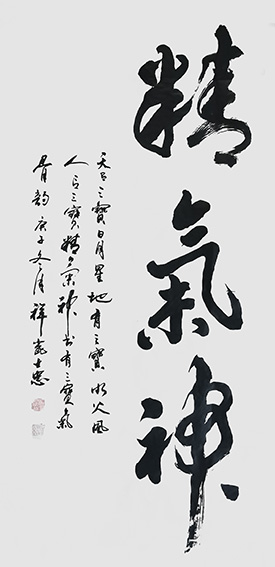 精氣神
天有三寶日月星地有三寶水火風
人有三寶精氣神書有三寶氣
骨韵庚子冬月祥